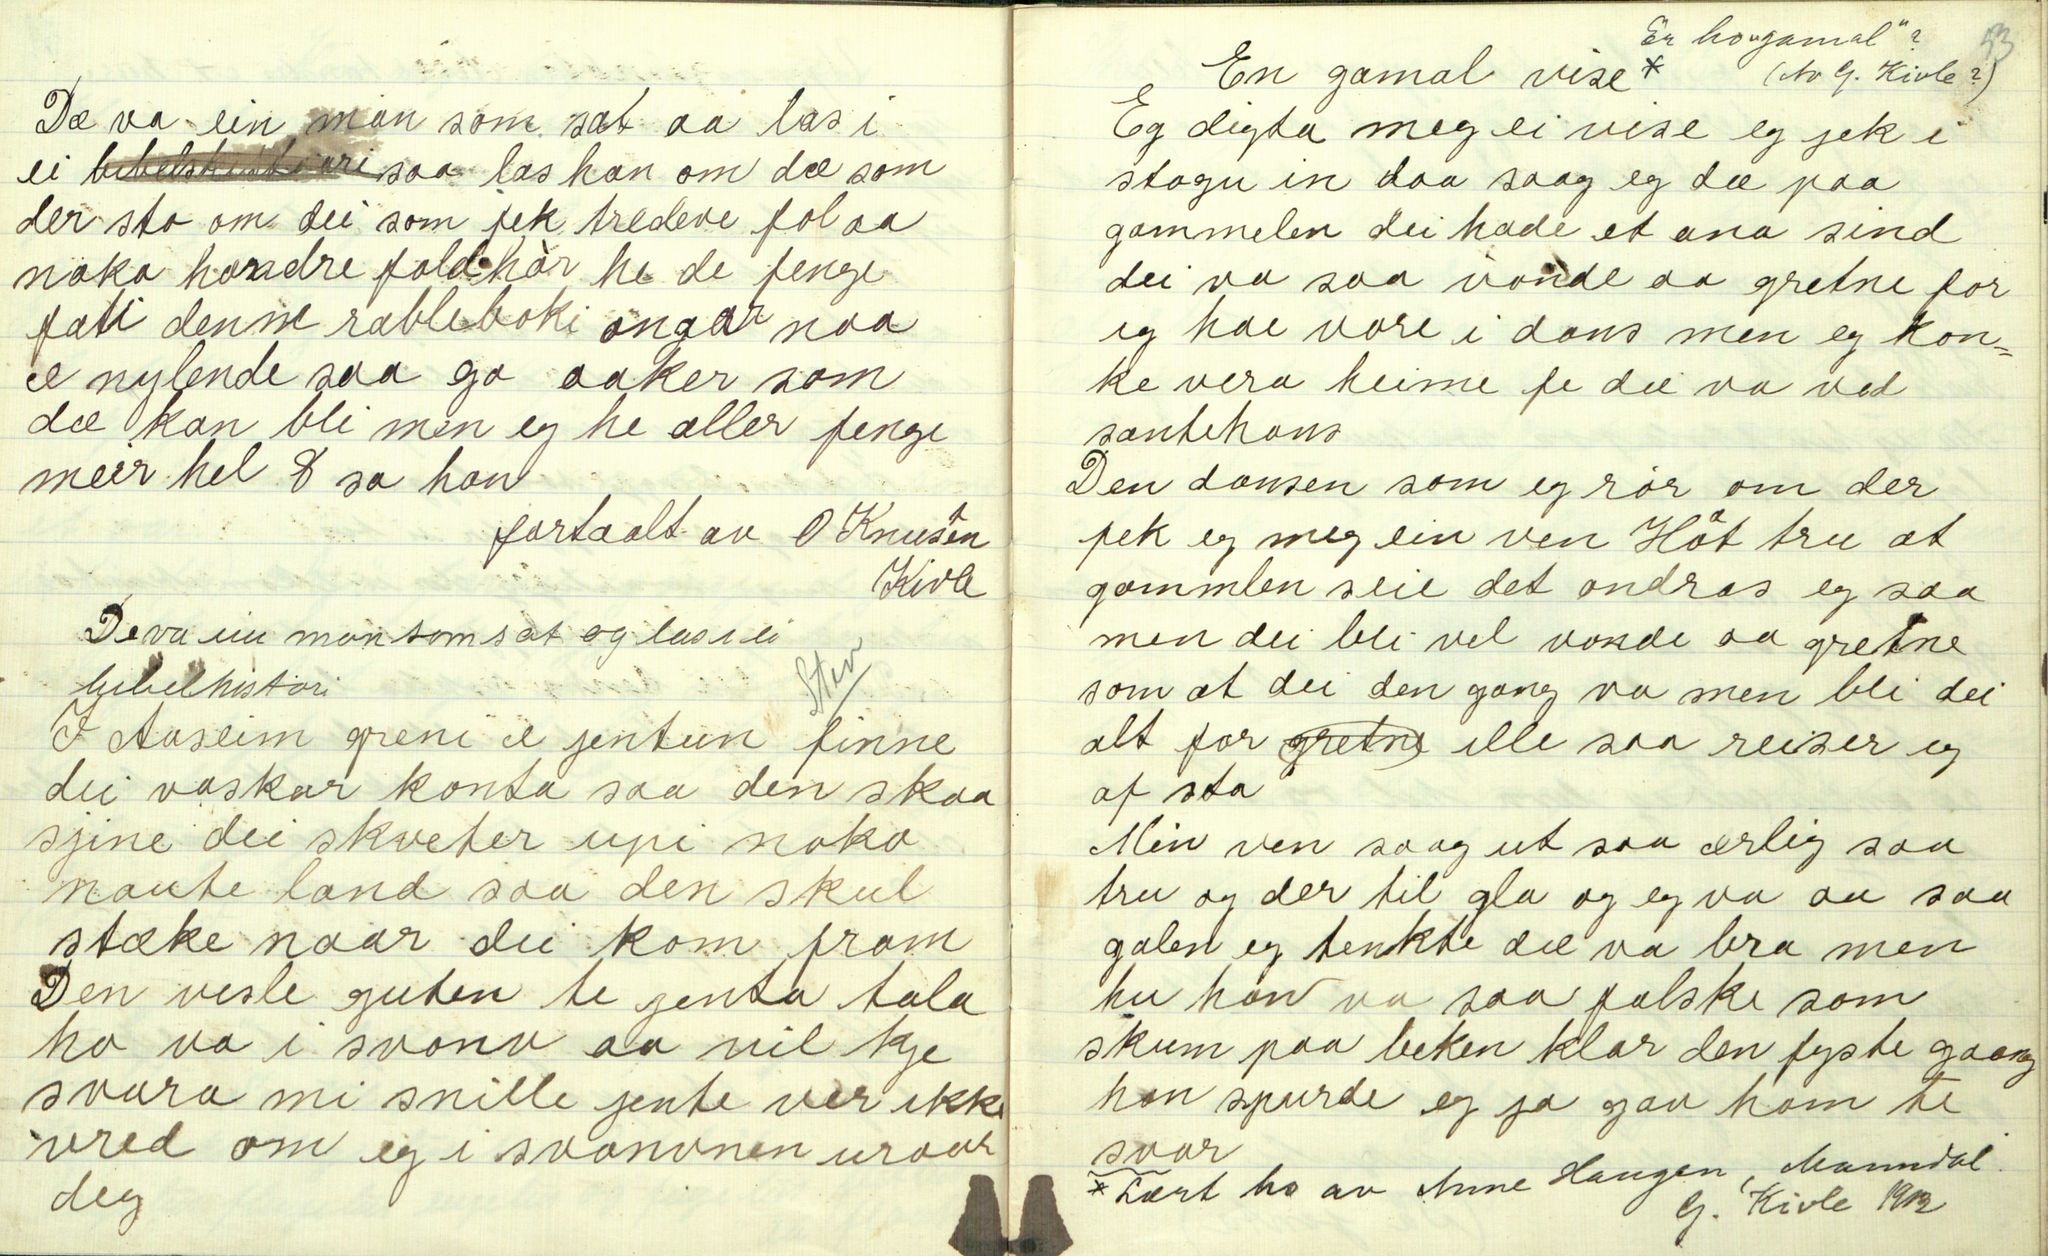 Dæ va ein man som sat aa las i
ei bibelskistoari saa las han om dæ som
der sto om dei som fek tredeve fol aa
noko hondre fold hòr he de fenge
fati denne rableboki ongar naa
æ nylende saa go aaker som
dæ kan bli men eg he aller fenge
meir hel 8 sa han
fortaalt av O Knusen
Kivle
De va ein man som sat og las i ei
bibelhistori
Stev
I Aaseim greni æ jentun finne
dei vaskar konta saa den skaa
sjine dei skveter upi noko
naute land saa den skul
stæke naar dei kom fram
Den vesle guten te jenta tala
ho va i svovnv aa vil kje
svara mi snille jente ver ikke
vred om eg i svovnen uroar
deg
53
Er ho "gamal"?
(Av G. Kivle?)
En gamal vise *
Eg digta meg ei vise eg jek i
stogu in daa saag eg dæ paa
gammelen dei hade et ana sind
dei va saa vonde aa gretne for
eg hae vore i dans men eg kon=
ke vera heime fe dæ va ved
santehans
Den dansen som eg rór om der
fek eg meg ein ven Hòt tru at
gammlen seie det ondras eg saa
men dei bli vel vonde aa gretne
som at dei den gang va men bli dei
alt for gretne ille saa reiser eg
af sta
Min ven saag ut saa ærlig saa
tru og der til gla og eg va au saa
galen eg tenkte dæ va bra men
hu han va saa falske som
skum paa beken klar den fyste gaang
han spurde eg ja gav ham te
svar
* Lært ho av Anne Haugen, Manndal.
G. Kivle 1913